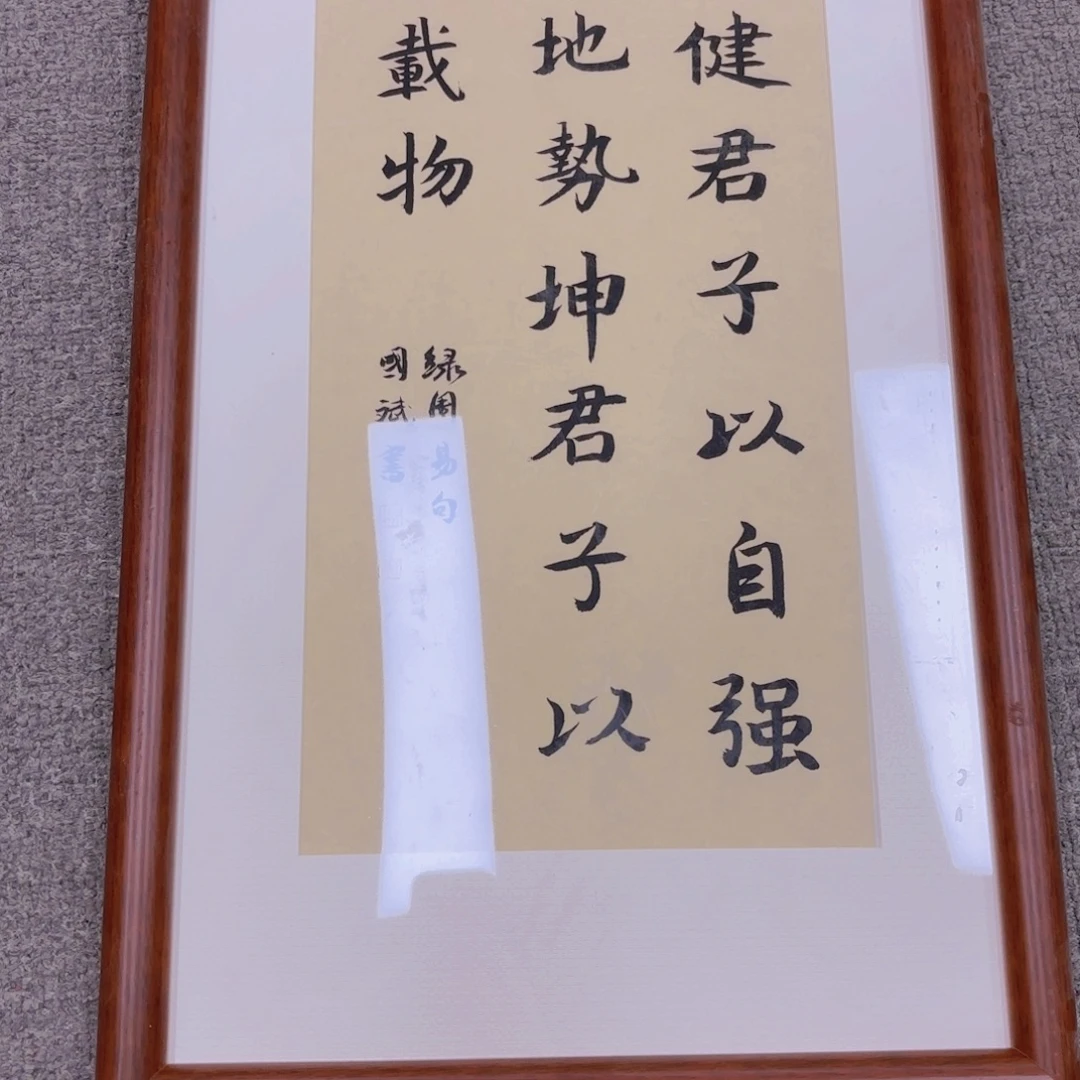 健君子以自强
地勢坤君子以
載物
緑周易句
國斌書